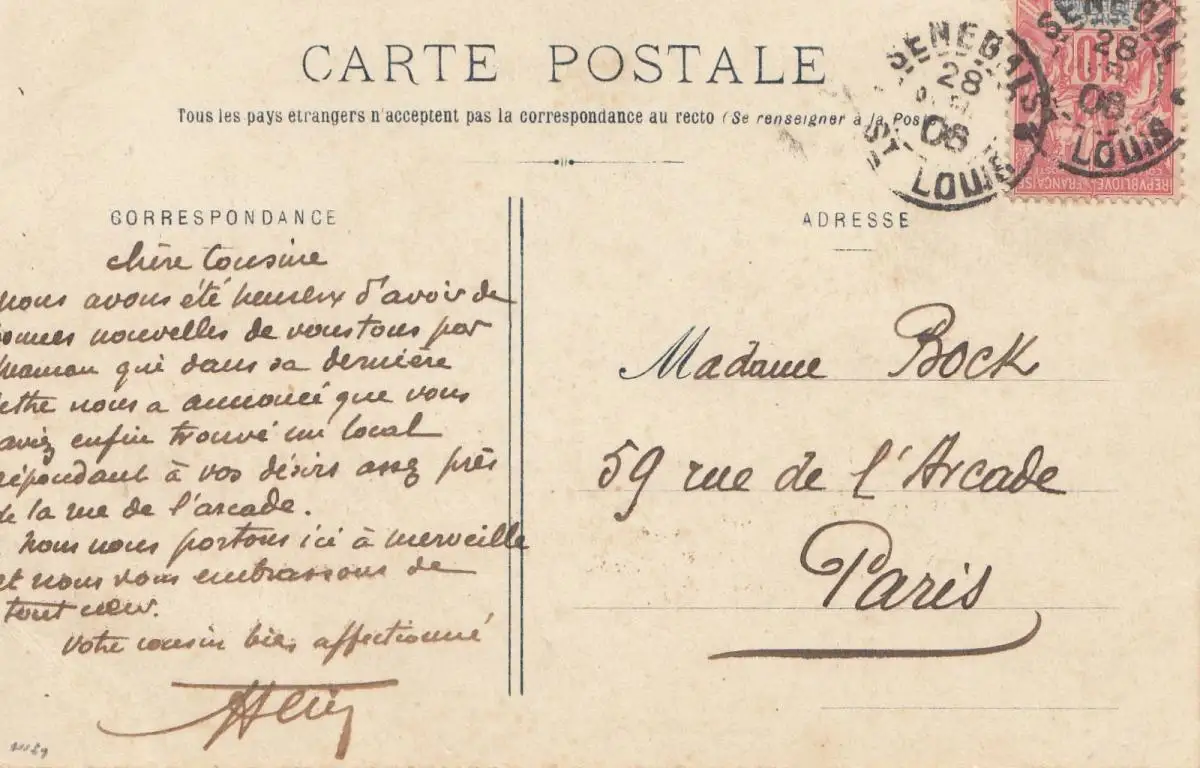 CARTE POSTALE
Tous les pays étrangers n'acceptent pas la correspondance au recto (Se renseigner à la Pos
SENEGAL
28
08
ST LOUIS
SENEGAL
28
08
LOUIS
10
REPVBLIQVE FRANÇAISE
CORRESPONDANCE
ADRESSE
chère Cousine
nous avons été heureux d'avoir de
bonnes nouvelles de vous tous par
maman qui dans sa dernière
lettre nous a annoncé que vous
aviez enfin trouvé un local
répondant à vos désirs assez près
de la rue de l'arcade.
Nous nous portons ici à merveille
et nous vous embrassons de
tout cœur.
Votre cousin bien affectionné
Henry
Madame Bock
59 rue de l'Arcade
Paris